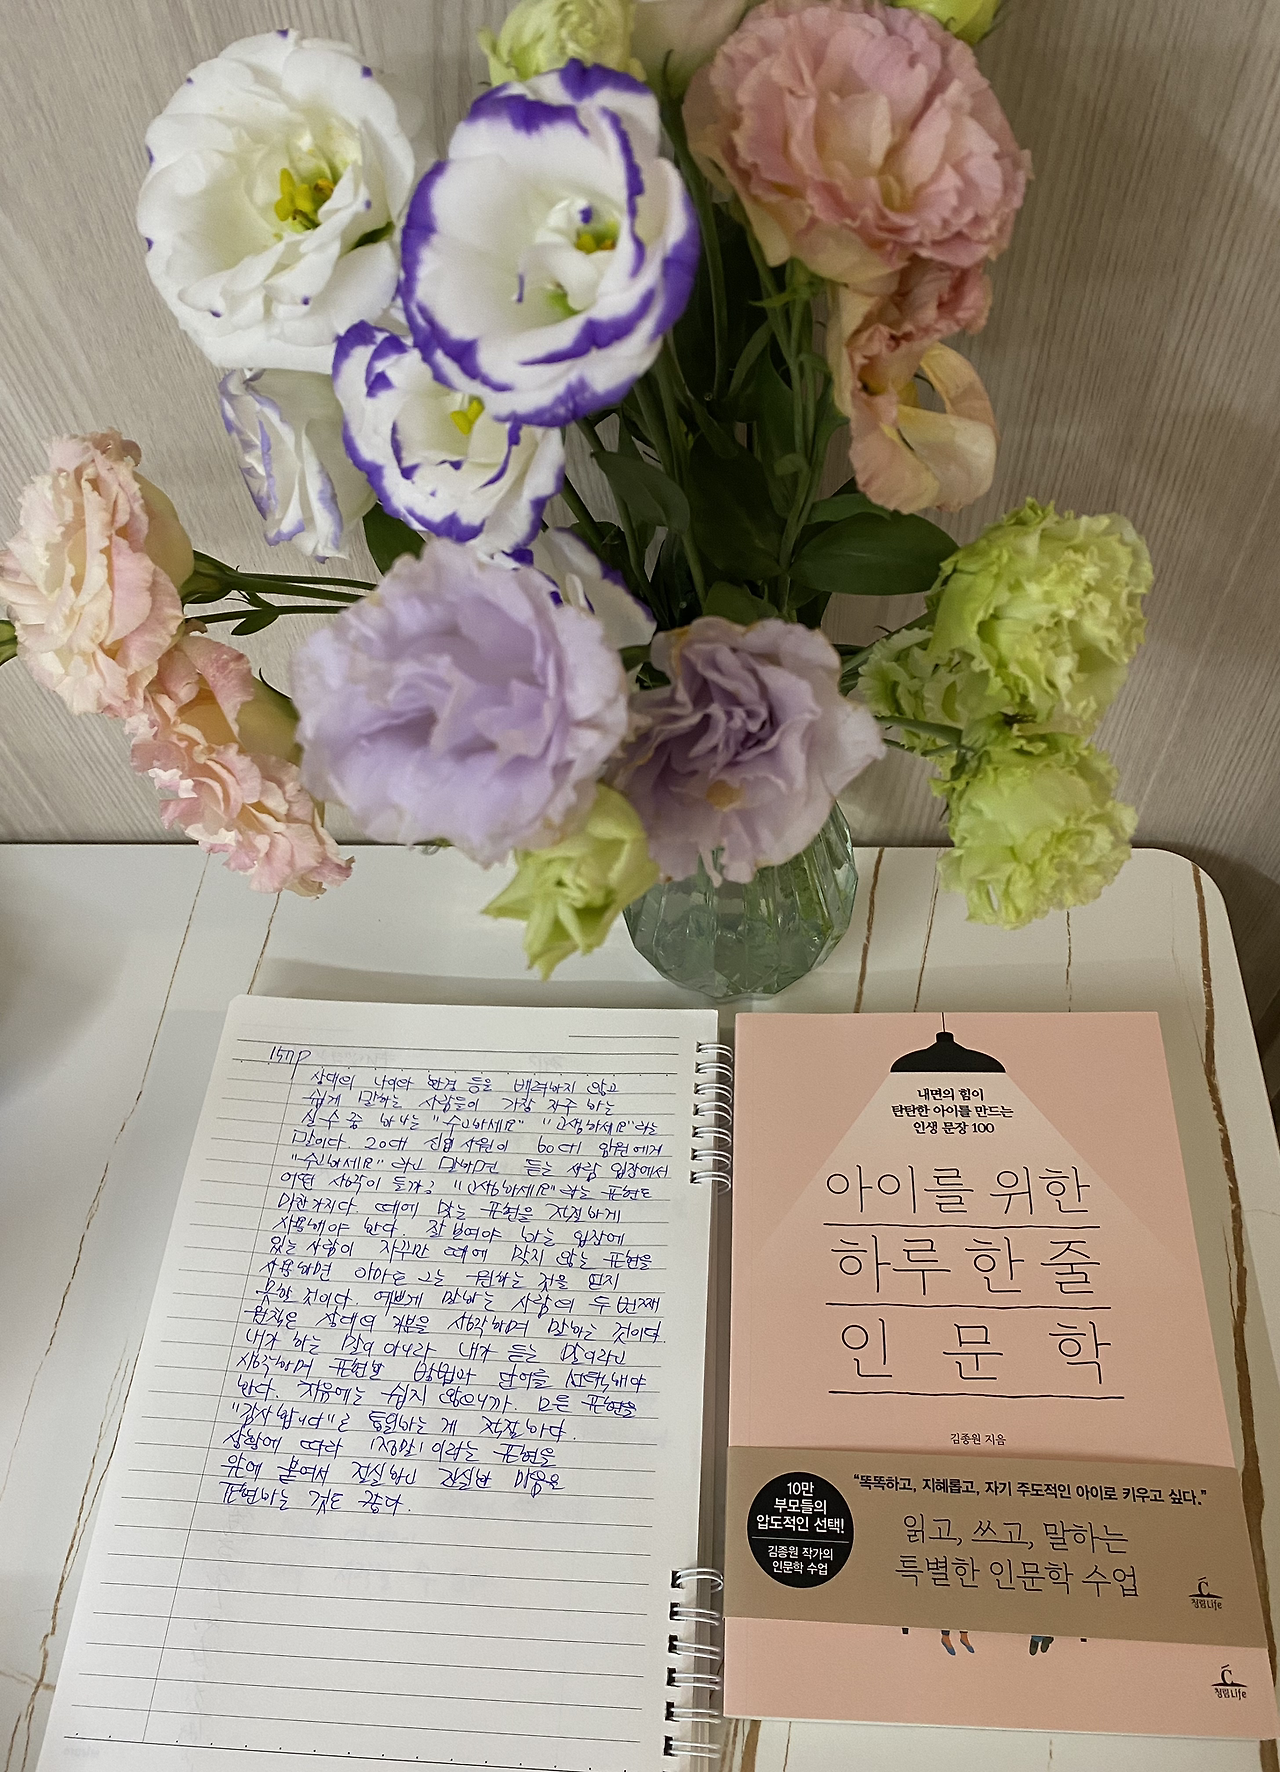 157P
상대의 나이와 환경 등을 배려하지 않고
쉽게 말하는 사람들이 가장 자주 하는
실수 중 하나는 "수고하세요" "고생하세요"라는
말이다. 20대 신입 사원이 60대 임원에게
"수고하세요" 라고 말하면 듣는 사람 입장에서
어떤 생각이 들까? "고생하세요"라는 표현도
마찬가지다. 때에 맞는 표현을 적절하게
사용해야 한다. 잘 보여야 하는 입장에
있는 사람이 자꾸만 때에 맞지 않는 표현을
사용하면 아마도 그는 원하는 것을 얻지
못할 것이다. 예쁘게 말하는 사람의 두 번째
원칙은 상대의 기분을 생각하며 말하는 것이다.
내가 하는 말이 아니라 내가 듣는 말이라고
생각하며 표현할 방법과 단어를 선택해야
한다. 처음에는 쉽지 않으니까. 모든 표현을
"감사합니다"로 통일하는 게 적절하다.
상황에 따라 '정말'이라는 표현을
앞에 붙여서 진실하고 간절한 마음을
표현하는 것도 좋다.
내면의 힘이
탄탄한 아이를 만드는
인생 문장 100
아이를 위한
하루 한 줄
인 문 학
김종원 지음
10만
부모들의
압도적인 선택!
김종원 작가의
인문학 수업
"똑똑하고, 지혜롭고, 자기 주도적인 아이로 키우고 싶다."
읽고, 쓰고, 말하는
특별한 인문학 수업
청림Life
청림Life